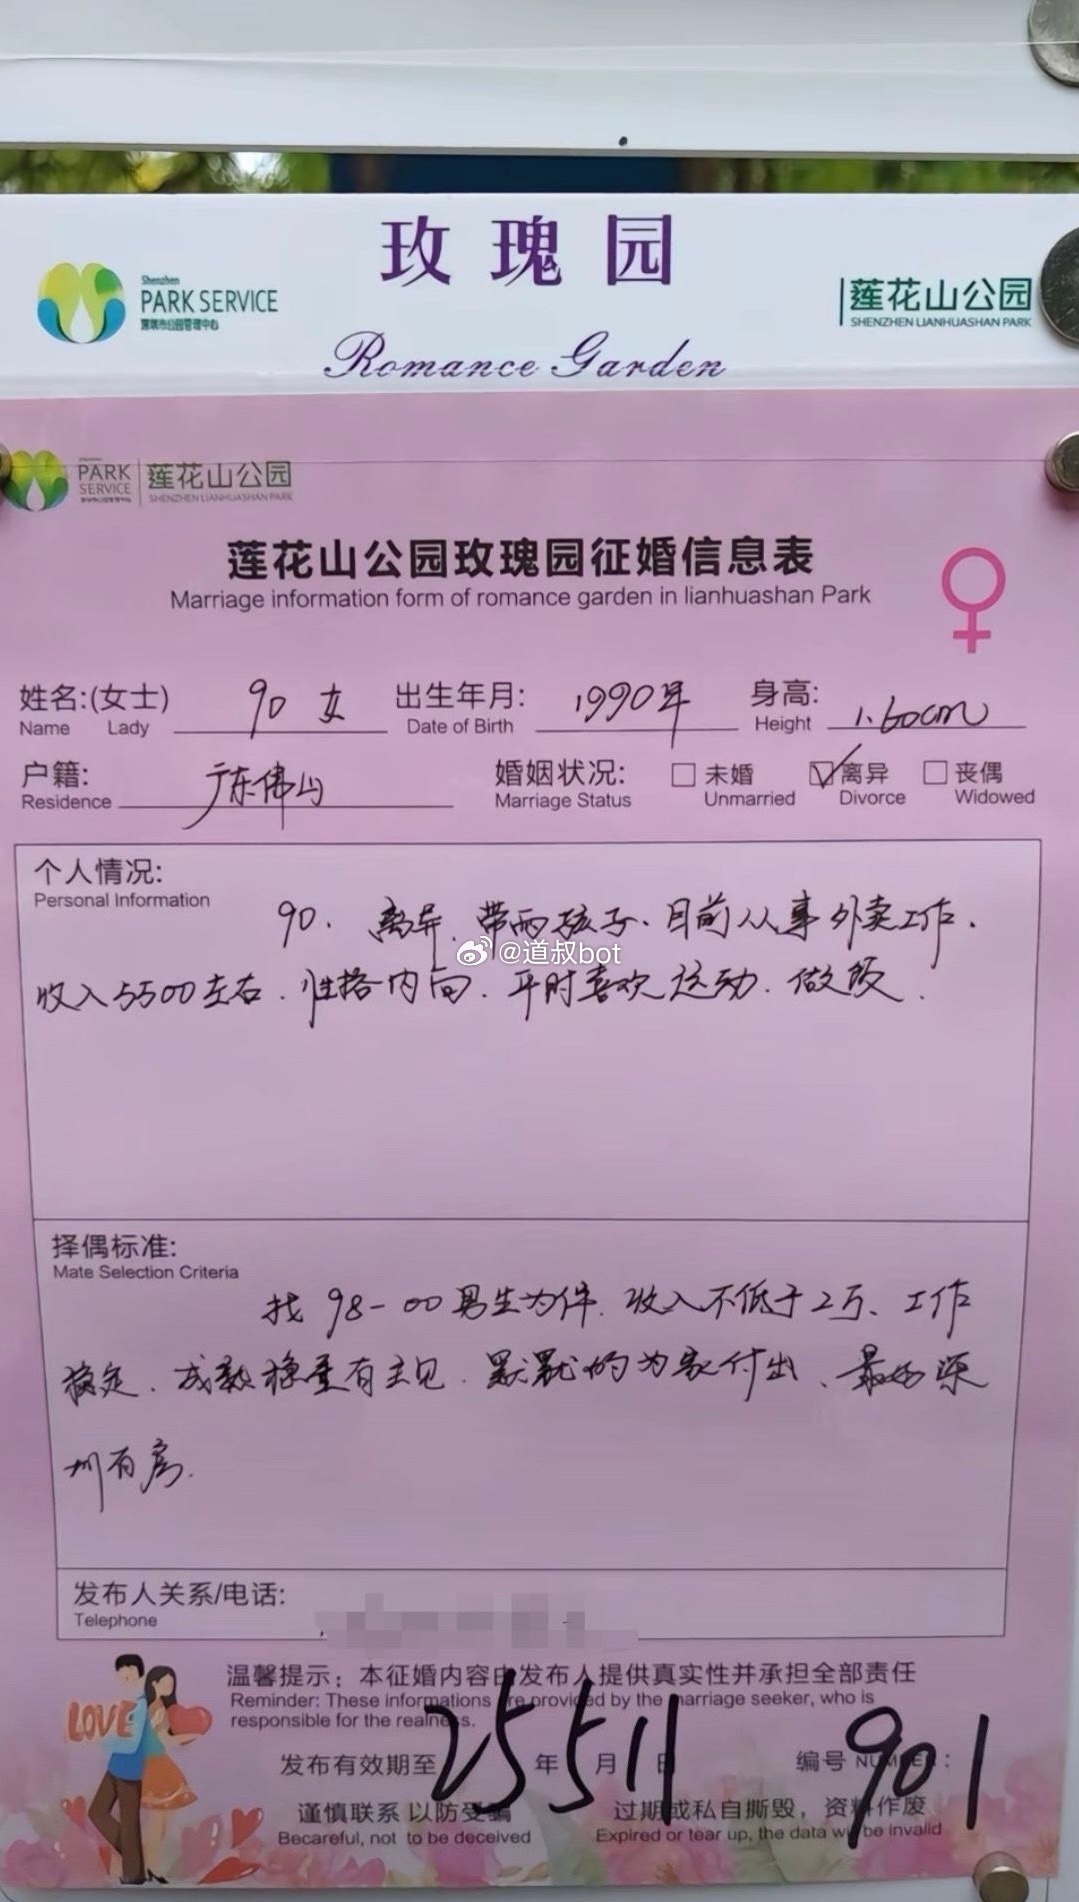 玫瑰园
Shenzhen
PARK SERVICE
深圳市公园管理中心
莲花山公园
SHENZHEN LIANHUASHAN PARK
Romance Garden
PARK
SERVICE
莲花山公园
SHENZHEN LIANHUASHAN PARK
莲花山公园玫瑰园征婚信息表
Marriage information form of romance garden in lianhuashan Park
姓名:(女士) 90 女 出生年月: 1990年 身高: 1.60cm
Name Lady Date of Birth Height
户籍: 广东佛山 婚姻状况: 未婚 离异 丧偶
Residence Marriage Status Unmarried Divorce Widowed
个人情况:
Personal Information
90. 离异. 带两孩子. 目前从事外卖工作.
@道叔bot
收入5500左右. 性格内向. 平时喜欢运动. 做饭.
择偶标准:
Mate Selection Criteria
找98-00男生为伴. 收入不低于2万、工作
稳定. 成熟稳重有主见. 默默的为家付出、最好深
圳有房.
发布人关系/电话:
Telephone
温馨提示：本征婚内容由发布人提供真实性并承担全部责任
Reminder: These informations are provided by the marriage seeker, who is
responsible for the realness.
LOVE
发布有效期至 25 年 5 月 11 日 编号 NUMBER: 901
谨慎联系 以防受骗 过期或私自撕毁，资料作废
Becareful, not to be deceived Expired or tear up, the data will be invalid